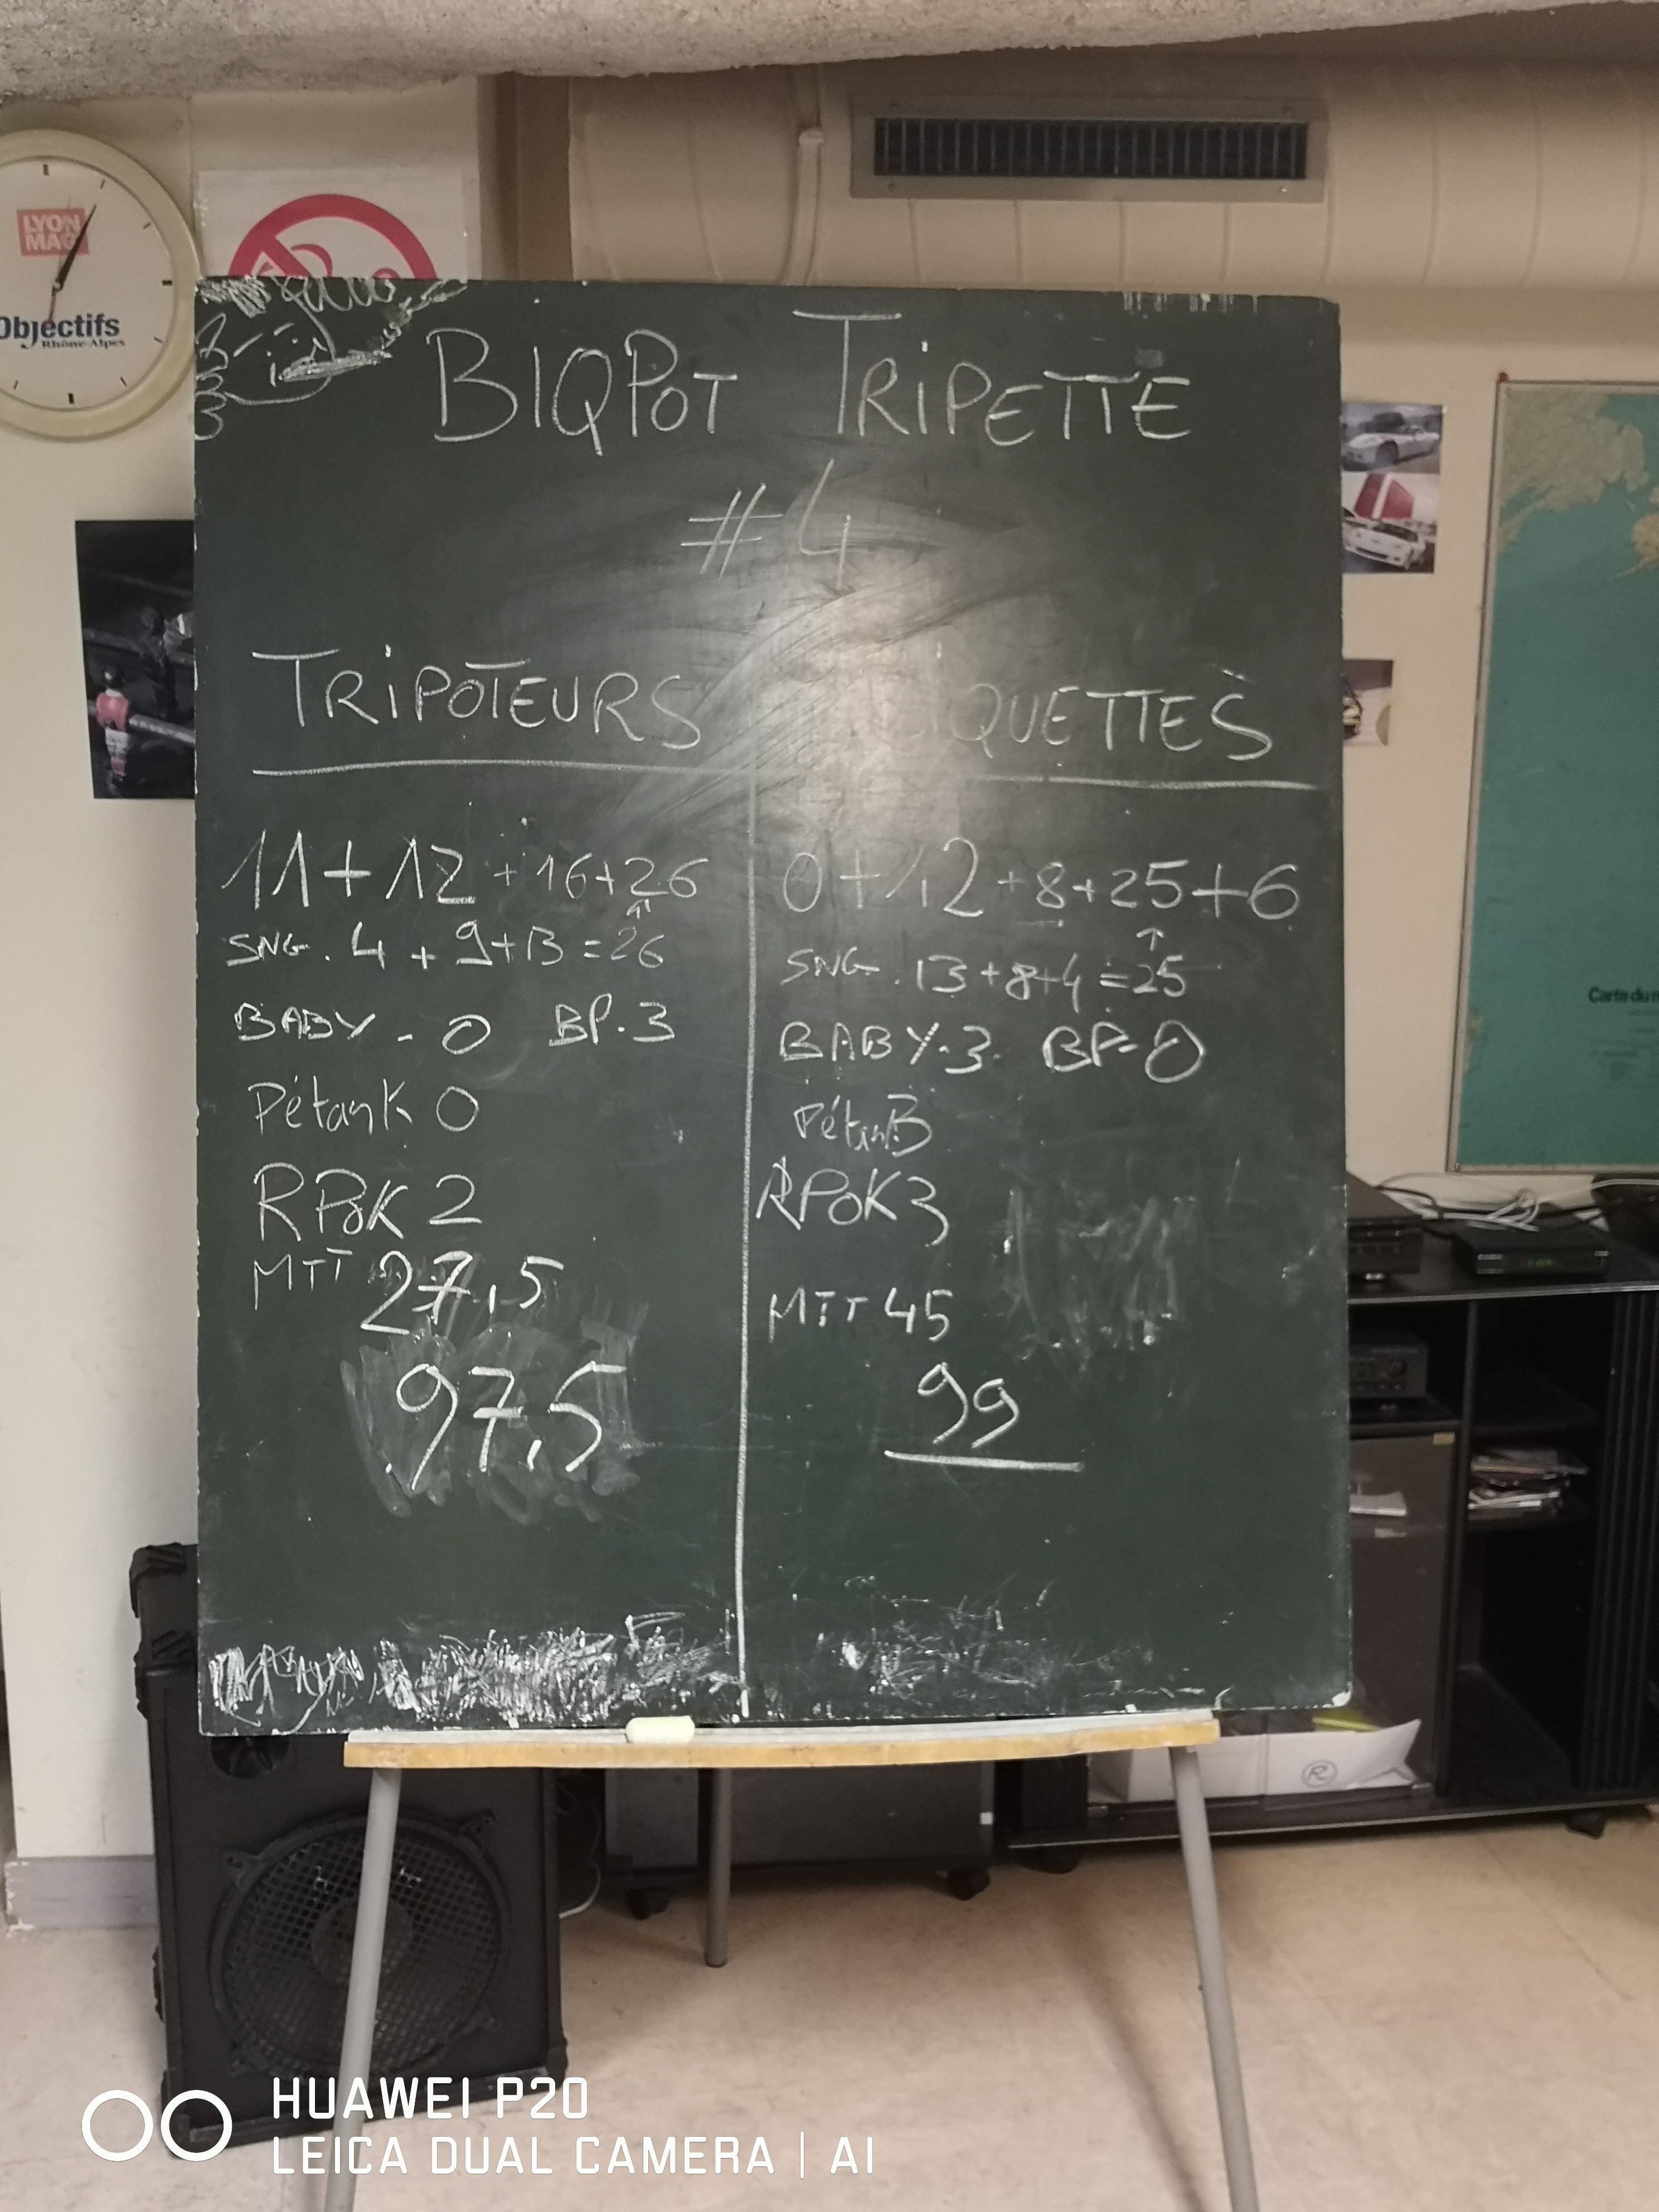 LYON
MAG
Objectifs
Rhône-Alpes
BIQPOT TRIPETTE
#4
TRIPOTEURS
IQUETTES
11+12+16+26
SNG. 4+9+13=26
BABY - 0 BP.3
PétanK 0
RPoK 2
MTT 27,5
97,5
0+12+8+25+6
SNG .13+8+4=25
BABY.3. BP-0
Pétan3
RPOK3
MTT 45
99
Carte du
R
HUAWEI P20
LEICA DUAL CAMERA | AI